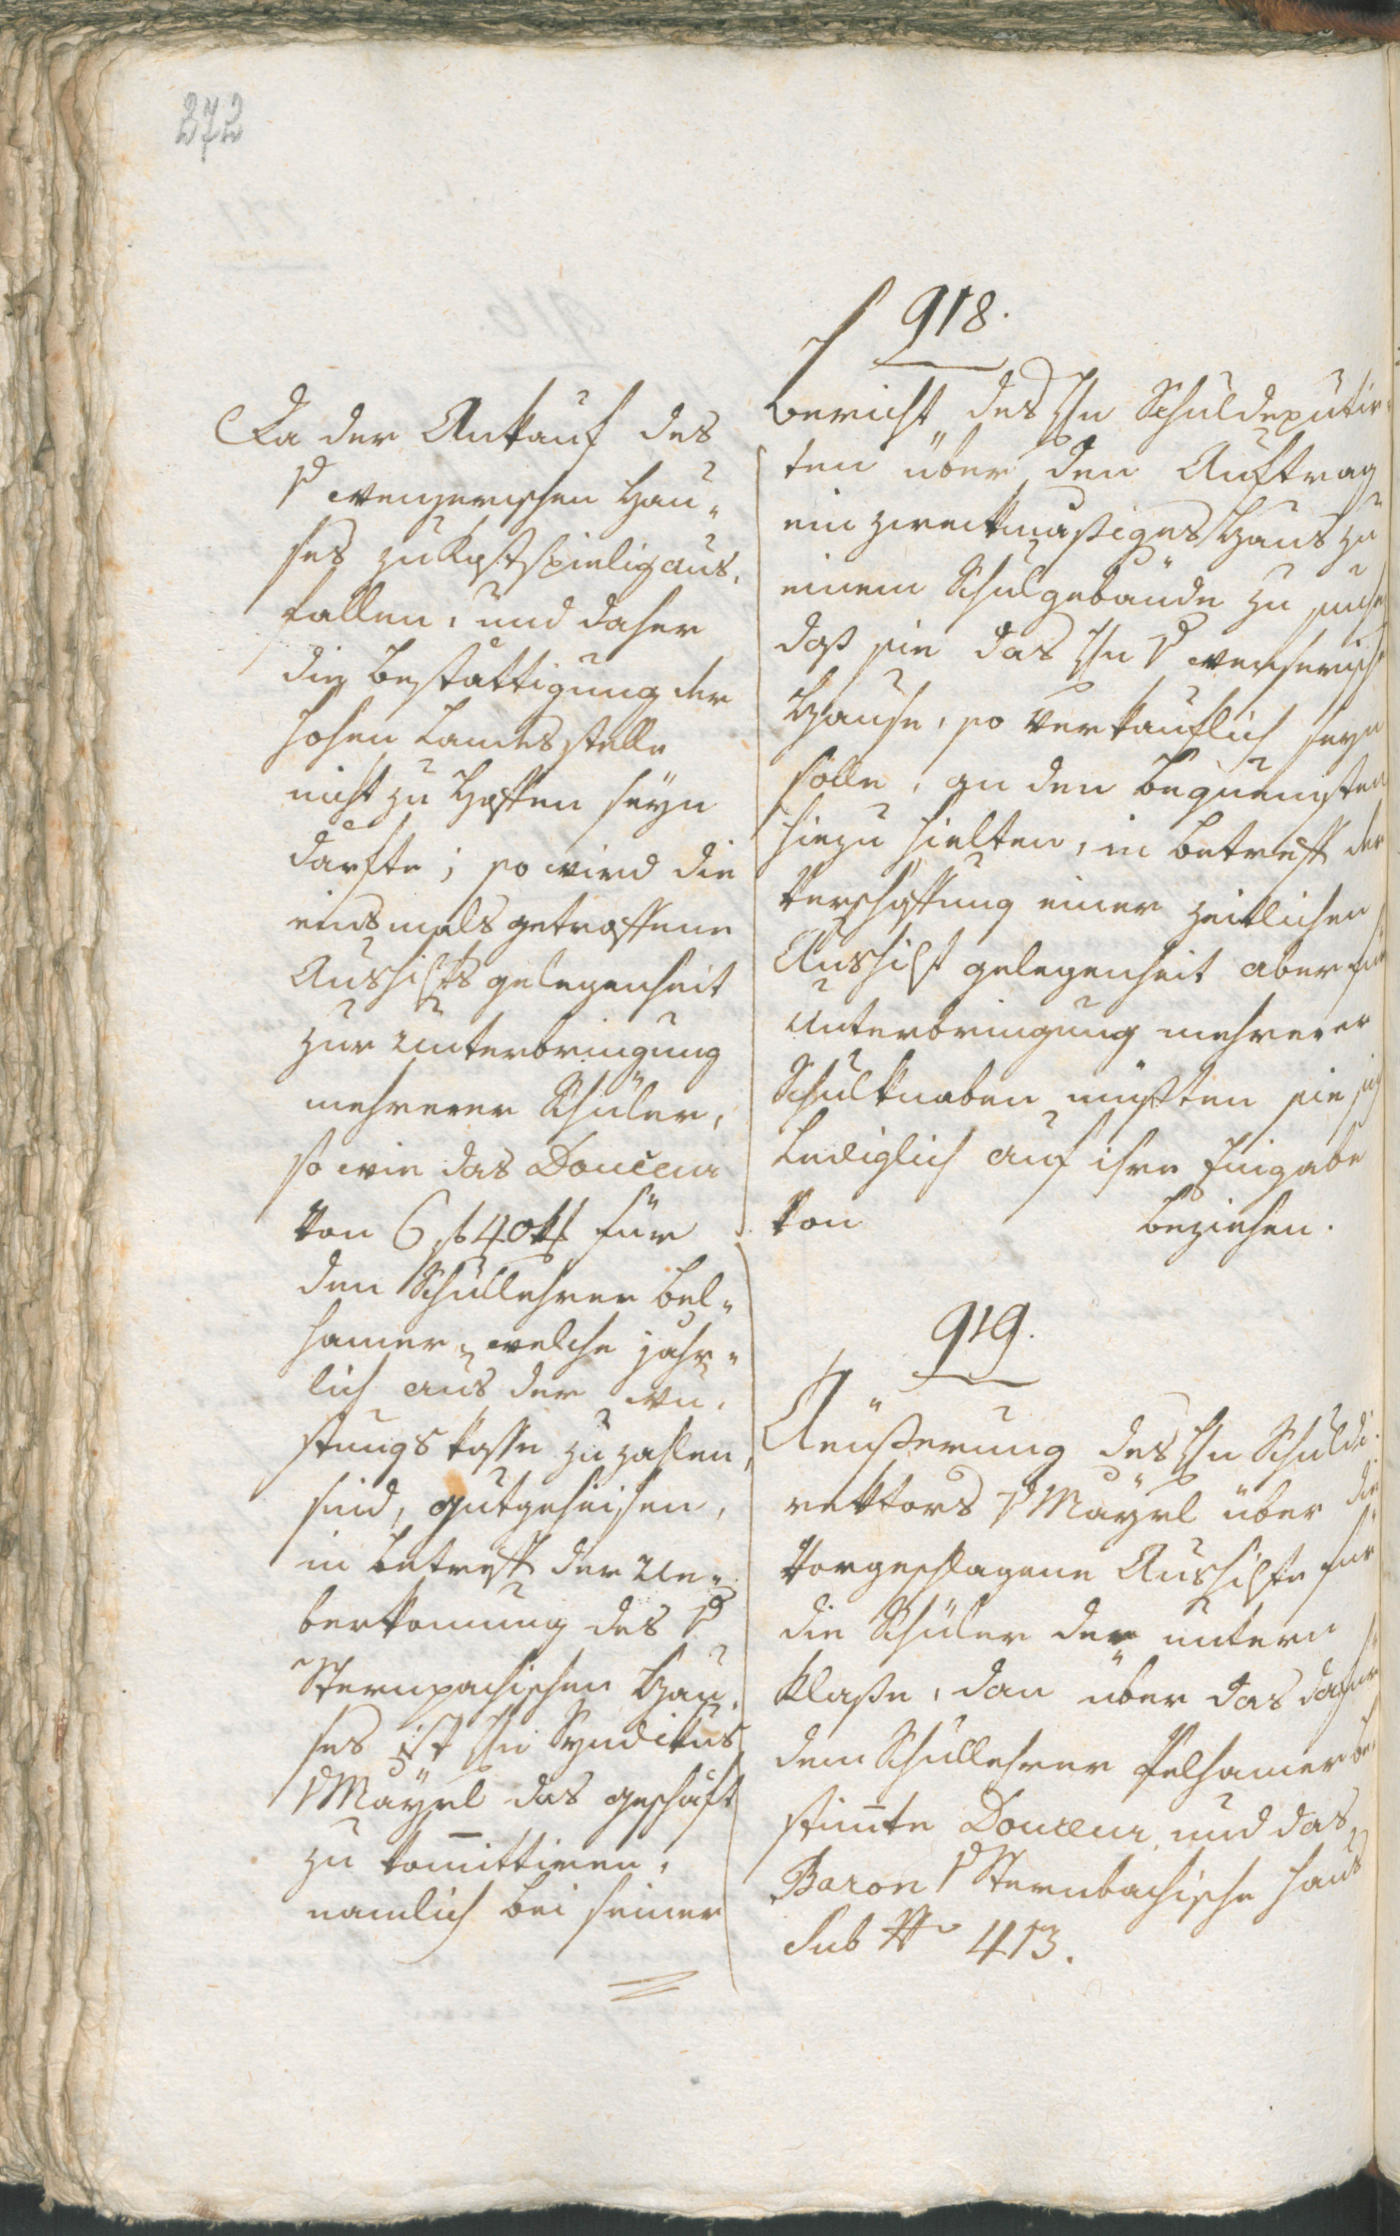 272
Da der Ankauf des
v wenzerischen Hau„
ses zu kostspielig aus„
fallen, und daher
die Bestättigung der
hohen Landesstelle
nicht zu hoffen seyn
darfte; so wird die
einsmals getroffene
Aushilfs gelegenheit
zur Unterbringung
mehrerer Schüler,
so wie das Douceur
von 6 f 40 kr für
den Schullehrer Bel„
hamer, welche jähr„
lich aus der
stungs kasse zu zahlen,
sind, gutgeheisen,
in betreff der Ue„
berkomung des v
Sternpachischen Hau„
ses ist Hn Syndikus
v Mayrl das geschäft
zu komittiren,
namlich bei seiner
918.
Bericht des Hn Schuldeputir„
ten über den Auftrag
ein zweckmäßiges Haus zu
einem Schulgebäude zu suchen
daß sie das Hn v wenserisch
Hause, so verkauflich seyn
solle, an den bequemsten
hiezu hielten, in betreff der
Verschaffung einer zeitlichen
Aushilfs gelegenheit aber für
Unterbringung mehrerer
Schulknaben müßten sie sich
lediglich auf ihre Eingabe
von beziehen.
919.
Aeüßerung des Hn Schuldi„
rektors v Mayrl über die
vorgeschlagene Aushilfe für
die Schüler der untern
Klaße, dan über das dafür
dem Schullehrer Pelhamer be„
stimte Douceur und das
Baron v Sternbachische Haus
Sub No 413.